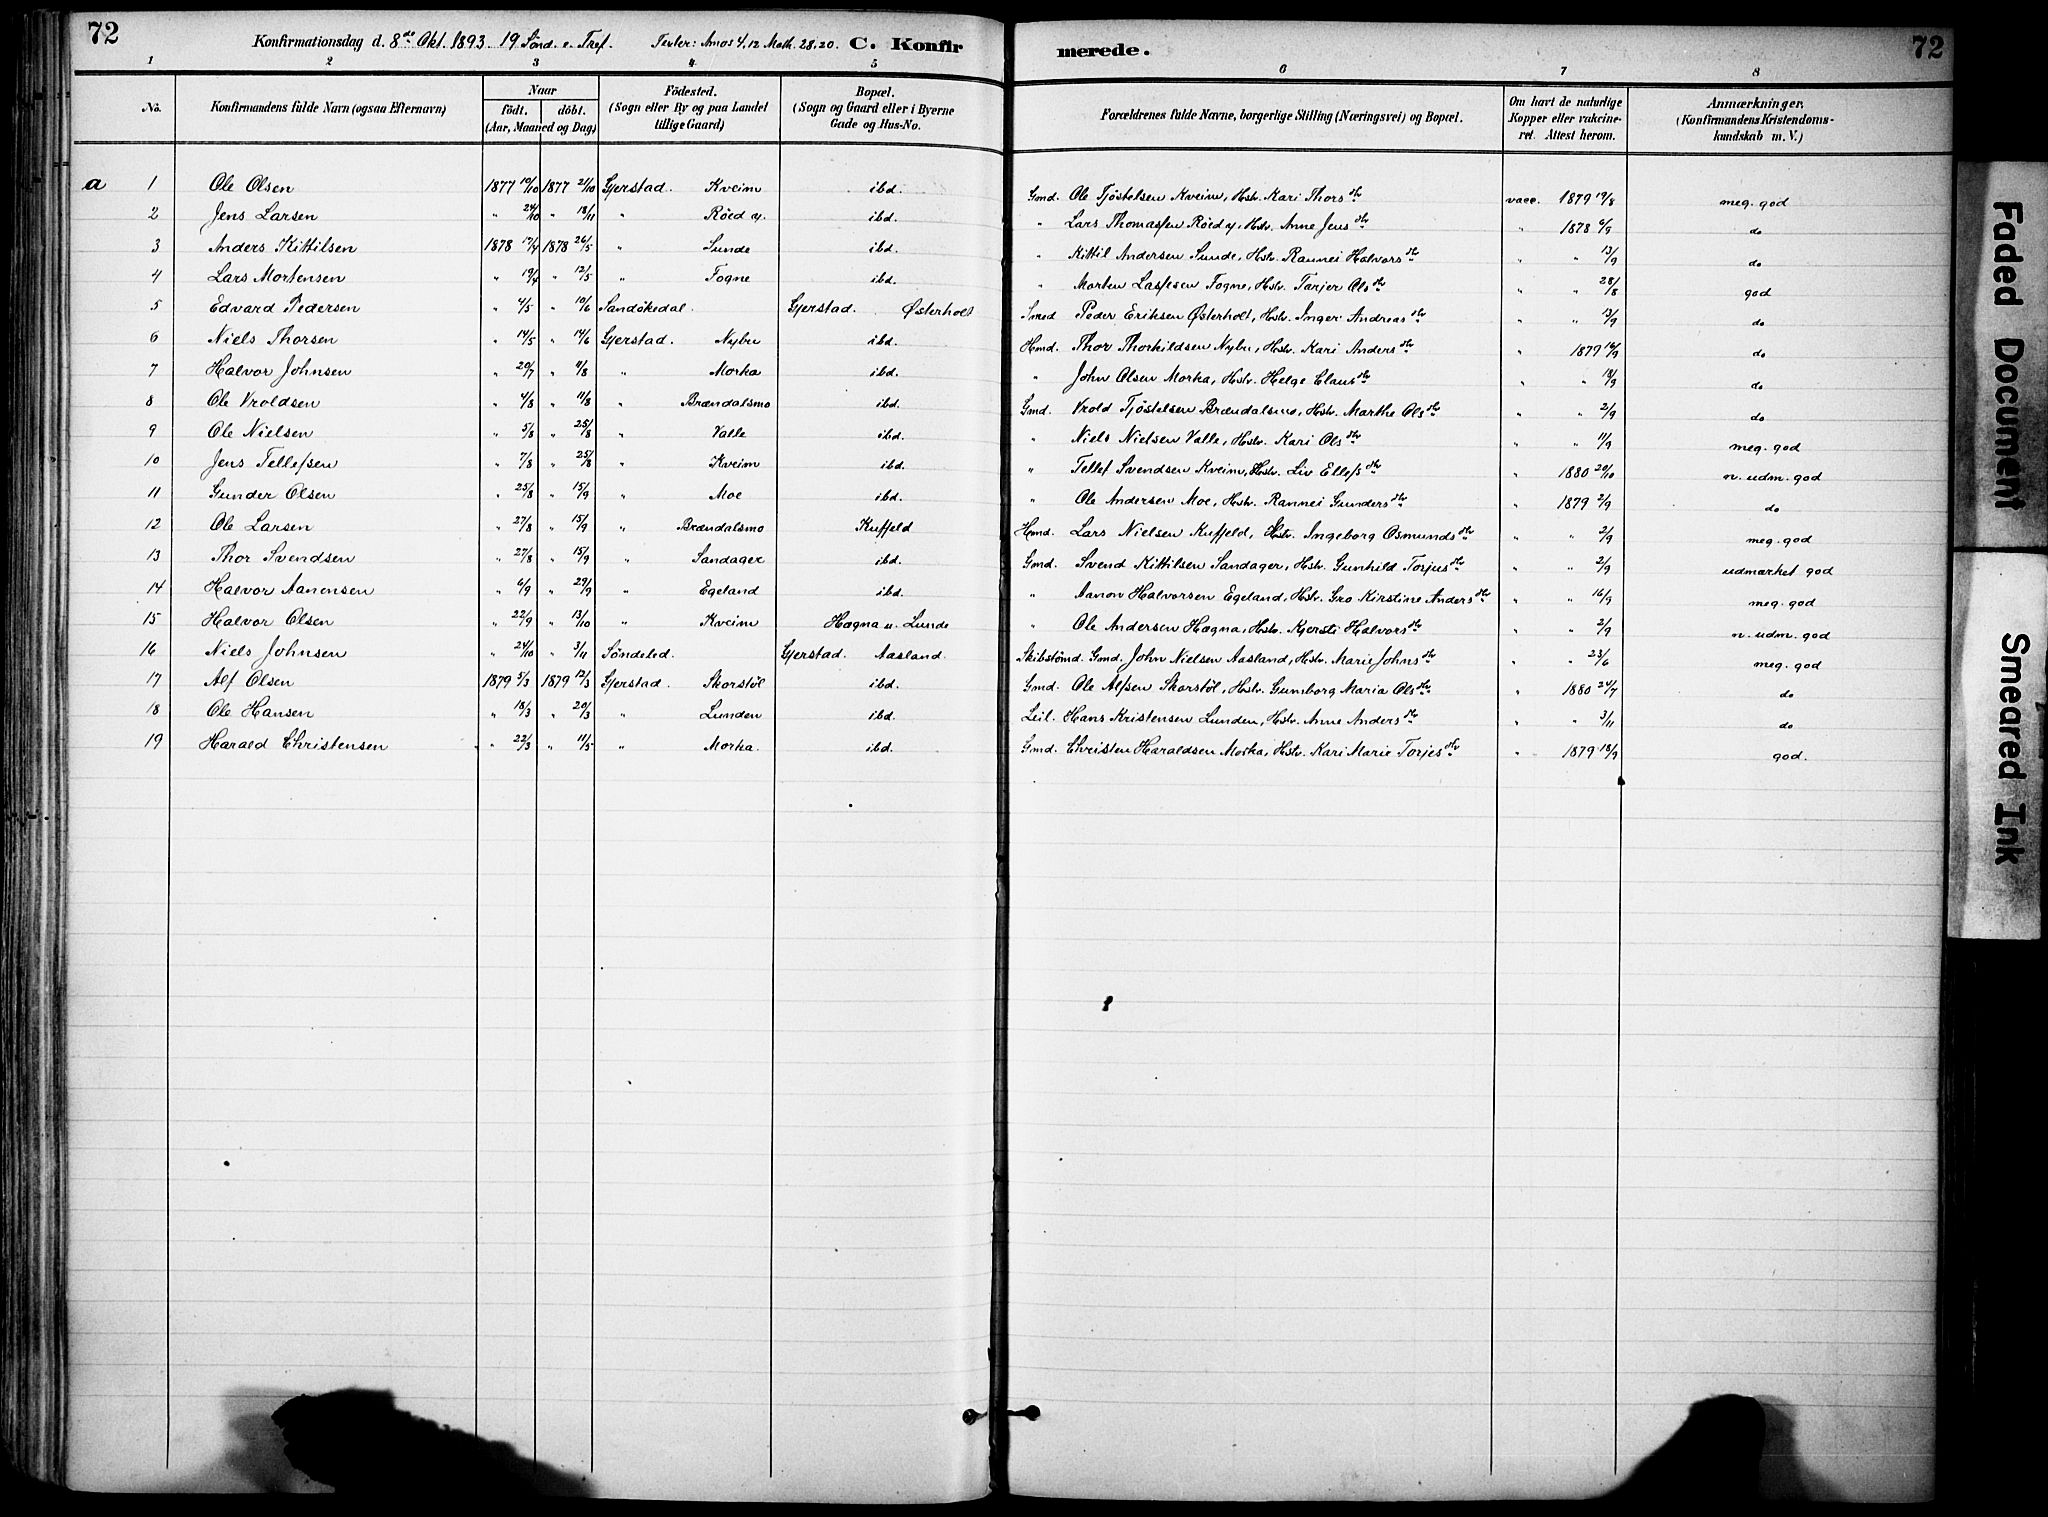 72 Konfirmationsdag d. 8de Okt. 1893. 19 Sönd. e. Tref. Texter: Amos 4,12 Math. 28,20. C. Konfir merede. 72
1 2 3 4 5 6 7 8
No. Konfirmandens fulde Navn (ogsaa Efternavn) Naar födt. döbt. (Aar, Maaned og Dag) Födested. (Sogn eller By og paa Landet tillige Gaard) Bopæl. (Sogn og Gaard eller i Byerne Gade og Hus-No. Forældrenes fulde Navne, borgerlige Stilling (Næringsvei) og Bopæl. Om havt de naturlige Kopper eller vakcineret. Attest herom. Anmærkninger. (Konfirmandens Kristendomskundskab m. V.)
a 1 Ole Olsen 1877 10/10 1877 21/10 Gjerstad. Kveim ibd. Gmd. Ole Tjöstelsen Kveim, Hstr. Kari Thorsdtr vacc. 1879 19/8 meg. god
2 Jens Larsen " 24/10 " 18/11 " Röed y. ibd. " Lars Thomassen Röed y, Hstr. Anne Jensdtr " 1878 6/9 do
3 Anders Kittilsen 1878 17/4 1878 26/5 " Lunde ibd. " Kittil Andersen Lunde, Hstr. Rannei Halvorsdtr " " 13/9 do
4 Lars Mortensen " 19/4 " 12/5 " Fogne ibd. " Morten Lassesen Fogne, Hstr. Tarjer Olsdtr " " 28/8 god
5 Edvard Pedersen " 4/5 " 10/6 Sandökedal. Gjerstad. Østerholt Smed Peder Eriksen Østerholt, Hstr. Inger Andreasdtr " " 13/9 do
6 Niels Thorsen " 14/5 " 14/6 Gjerstad. Nybu ibd. Hmd. Thor Thorkildsen Nybu, Hstr. Kari Andersdtr " 1879 16/9 do
7 Halvor Johnsen " 20/7 " 11/8 " Morka ibd. " John Olsen Morka, Hstr. Helge Clausdtr " " 18/9 do
8 Ole Vroldsen " 4/8 " 11/8 " Brændalsmo ibd. Gmd. Vrold Tjöstelsen Brændalsmo, Hstr. Marthe Olsdtr " " 2/9 do
9 Ole Nielsen " 5/8 " 25/8 " Valle ibd. " Niels Nielsen Valle, Hstr. Kari Olsdtr " " 11/9 meg. god
10 Jens Tellefsen " 7/8 " 25/8 " Kveim ibd. " Tellef Svendsen Kveim, Hstr. Liv Ellefsdtr " 1880 20/10 n. udm. god
11 Gunder Olsen " 25/8 " 15/9 " Moe ibd. " Ole Andersen Moe, Hstr. Rannei Gundersdtr " 1879 2/9 do
12 Ole Larsen " 27/8 " 15/9 " Brændalsmo Kuffeld Hmd. Lars Nielsen Kuffeld, Hstr. Ingeborg Osmundsdtr " " 2/9 meg. god
13 Thor Svendsen " 27/8 " 15/9 " Sandager ibd. Gmd. Svend Kittilsen Sandager, Hstr. Gunhild Torjusdtr " " 2/9 udmærket god
14 Halvor Aanonsen " 6/9 " 29/9 " Egeland ibd. " Aanon Halvorsen Egeland, Hstr. Gro Kirstine Andersdtr " " 16/9 meg. god
15 Halvor Olsen " 22/9 " 13/10 " Kveim Hægna u. Lunde " Ole Andersen Hægna, Hstr. Kjersti Halvorsdtr " " 2/9 n. udm. god
16 Niels Johnsen " 24/10 " 3/11 Söndeled. Gjerstad. Aasland. Skibstömd. Gmd. John Nielsen Aasland, Hstr. Marie Johnsdtr " " 23/6 meg. god
17 Alf Olsen 1879 5/3 1879 12/3 Gjerstad. Skorstöl ibd. Gmd. Ole Alfsen Skorstöl, Hstr. Gunborg Maria Olsdtr " 1880 24/7 do
18 Ole Hansen " 18/3 " 20/3 " Lunden ibd. Leil. Hans Kristensen Lunden, Hstr. Anne Andersdtr " " 3/11 do
19 Harald Christensen " 22/3 " 11/5 " Morka. ibd. Gmd. Christen Haraldsen Morka, Hstr. Kari Marie Torjesdtr " 1879 18/9 god.
Faded Document
Smeared Ink